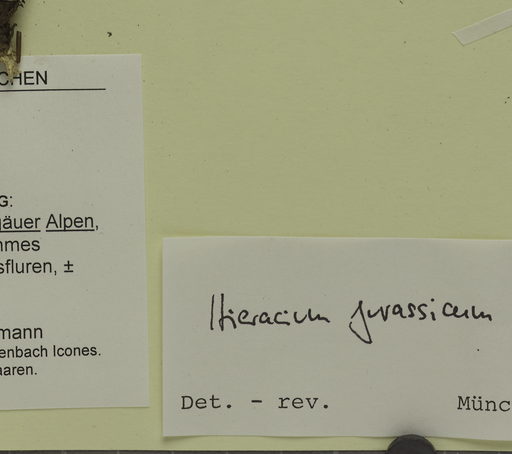 CHEN
G:
gäuer Alpen,
nmes
sfluren, ±
mann
enbach Icones.
aaren.
Hieracium jurassicum
Det. - rev.
Münc